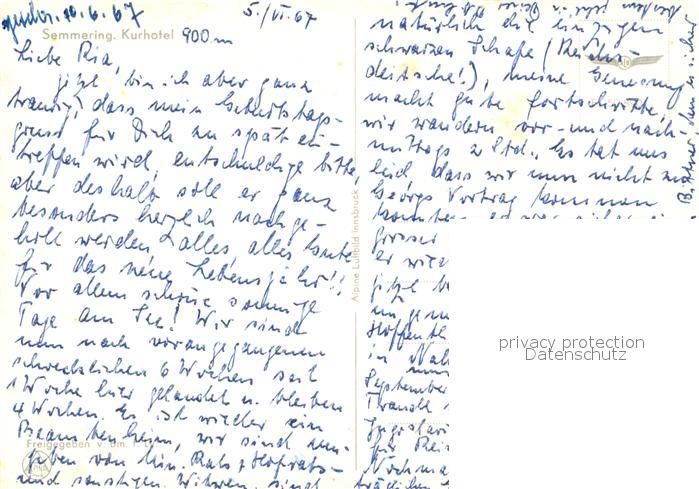 geschr. 10.6.67
5./VI.67
Semmering. Kurhotel 900 m
Liebe Ria,
jetzt bin ich aber ganz
traurig, dass mein Geburtstags-
gruss für Dich zu spät ein-
treffen wird, entschuldige bitte,
aber deshalb soll er ganz
besonders herzlich nachge-
holt werden & alles alles Gute
für das neue Lebensjahr!!
Vor allem schöne sonnige
Tage am See! Wir sind
nun nach vorangegangenen
schrecklichen 6 Wochen seit
1 Woche hier gelandet u. bleiben
4 Wochen. Es ist wieder ein
Beamtenheim, wir sind um-
Freigegeben v.
geben von Min. Rats & Hofrats-
und sonstigen Witwen, sind
Alpine Luftbild Innsbruck
natürlich die einzigen
schwarzen Schafe (Reichs-
deitsche!), meine Genesung
macht gute Fortschritte,
wir wandern vor- und nach-
mittags 2 Std., Es tat uns
leid, dass wir nun nicht zu
Georgs Vortrag kommen
grosser
er wie
jetzt
in
September
für Reis
Nochma
privacy protection
Datenschutz